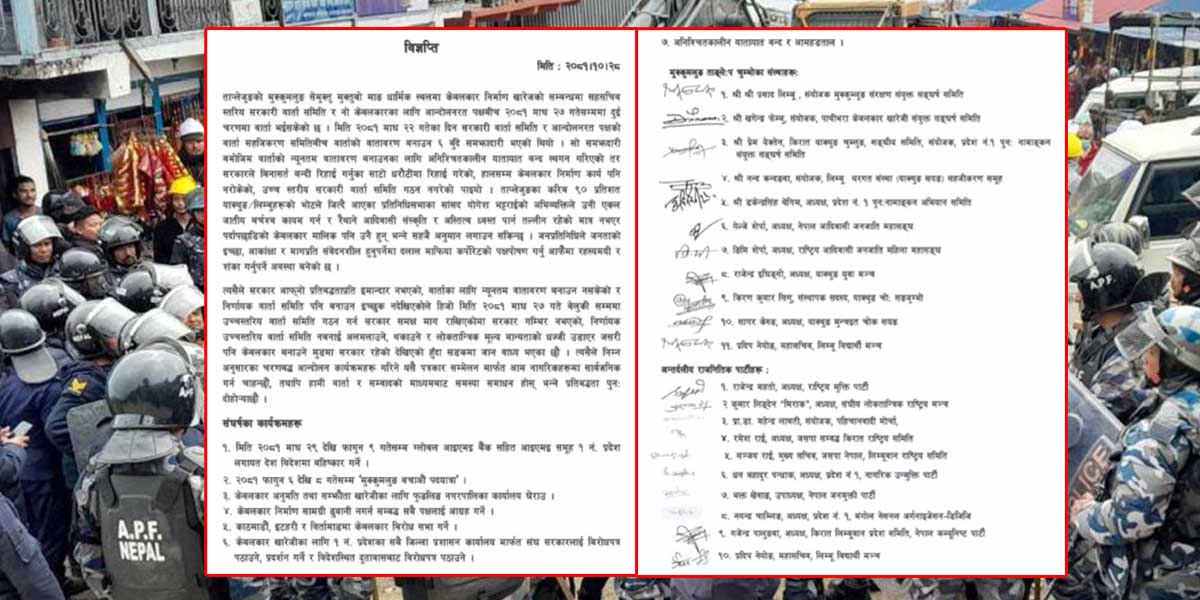 विज्ञप्ति
मिति : २०८१।१०।२८
ताप्लेजुङको मुक्कुमलुङ सेमुक्तु मुक्तुबो माङ धार्मिक स्थलमा केवलकार निर्माण खारेजको सम्बन्धमा सहसचिव
स्तरिय सरकारी वार्ता समिति र नो केवलकारका लागि आन्दोलनरत पक्षबीच २०८१ माघ २३ गतेसम्ममा दुई
चरणमा वार्ता भईसकेको छ । मिति २०८१ माघ २२ गतेका दिन सरकारी वार्ता समिति र आन्दोलनरत पक्षको
वार्ता सहजिकरण समितिबीच वार्ताको वातावरण बनाउन ६ बुँदे समझदारी भएको थियो । सो समझदारी
बमोजिम वार्ताको न्यूनतम वातावरण बनाउनका लागि अनिश्चितकालीन यातायात बन्द स्थगन गरिएको तर
सरकारले बिनासर्त बन्दी रिहाई गर्नुका साटो धरौटीमा रिहाई गरेको, हालसम्म केवलकार निर्माण कार्य पनि
नरोकेको, उच्च स्तरीय सरकारी वार्ता समिति गठन नगरेको पाइयो । ताप्लेजुङका करिब ९० प्रतिशत
याक्थुङ/लिम्बुहरूको भोटले जित्दै आएका प्रतिनिधिसभाका सांसद योगेश भट्टराईको अभिव्यक्तिले उनी एकल
जातीय बर्चश्व कायम गर्न र रैथाने आदिवासी संस्कृति र अस्तित्व ध्वस्त पार्न तल्लीन रहेको मात्र नभएर
पर्दापछाडिको केवलकार मालिक पनि उनै हुन् भन्ने सहजै अनुमान लगाउन सकिन्छ । जनप्रतिनिधिले जनताको
इच्छा, आकांक्षा र मागप्रति संवेदनशील हुनुपर्नेमा दलाल माफिया कर्पोरेटको पक्षपोषण गर्नु आफैंमा रहस्यमयी र
शंका गर्नुपर्ने अवस्था बनेको छ ।
त्यसैले सरकार आफ्नो प्रतिबद्धताप्रति इमान्दार नभएको, वार्ताका लागि न्यूनतम वातावरण बनाउन नसकेको र
निर्णायक वार्ता समिति पनि बनाउन इच्छुक नदेखिएकोले हिजो मिति २०८१ माघ २७ गते बेलुकी सम्ममा
उच्चस्तरिय वार्ता समिति गठन गर्न सरकार समक्ष माग राखिएकोमा सरकार गम्भिर नभएको, निर्णायक
उच्चस्तरिय वार्ता समिति नबनाई अलमलाउने, थकाउने र लोकतान्त्रिक मूल्य मान्यताको धज्जी उडाएर जसरी
पनि केवलकार बनाउने मुडमा सरकार रहेको देखिएको हुँदा सडकमा जान बाध्य भएका छौं । त्यसैले निम्न
अनुसारका चरणबद्ध आन्दोलन कार्यक्रमहरू गरिने यसै पत्रकार सम्मेलन मार्फत आम नागरिकहरूमा सार्वजनिक
गर्न चाहन्छौं, तथापि हामी वार्ता र सम्वादको माध्यमबाट समस्या समाधान होस् भन्ने प्रतिबद्धता पुनः
दोहोर्‍याउँछौं ।
संघर्षका कार्यक्रमहरू
१. मिति २०८१ माघ २९ देखि फागुन ९ गतेसम्म ग्लोबल आइएमइ बैंक सहित आइएमइ समूह १ नं. प्रदेश
लगायत देश विदेशमा बहिष्कार गर्ने ।
२. २०८१ फागुन ६ देखि ८ गतेसम्म 'मुक्कुमलुङ बचाऔं पदयात्रा' ।
३. केवलकार अनुमति तथा सम्झौता खारेजीका लागि फुङलिङ नगरपालिका कार्यालय घेराउ ।
४. केवलकार निर्माण सामग्री ढुवानी नगर्न सम्बद्ध सबै पक्षलाई आग्रह गर्ने ।
५. काठमाडौं, इटहरी र विर्तामोडमा केवलकार विरोध सभा गर्ने ।
६. केवलकार खारेजीका लागि १ नं. प्रदेशका सबै जिल्ला प्रशासन कार्यालय मार्फत संघ सरकारलाई विरोधपत्र
पठाउने, प्रदर्शन गर्ने र विदेशस्थित दुतावासबाट विरोधपत्र पठाउने ।
७. अनिश्चितकालीन यातायात बन्द र आमहडताल ।
मुक्कुमलुङ ताङ्सेःप चुम्भोका संस्थाहरूः
१. श्री श्री प्रसाद लिम्बु , संयोजक मुक्कुम्लुङ संरक्षण संयुक्त सङ्घर्ष समिति
२. श्री खगेन्द्र फेम्बु, संयोजक, पाथीभरा केवलकार खारेजी संयुक्त सङ्घर्ष समिति
३. श्री प्रेम येक्तेन, किरात याक्थुङ चुम्लुङ, सङ्घीय समिति, संयोजक, प्रदेश नं.१ पुनः नामाङ्कन
संयुक्त सङ्घर्ष समिति
४. श्री नन्द कन्दङवा, संयोजक, लिम्बू थरगत संस्था (याक्थुङ सयङ) सहजीकरण समूह
५. श्री डकेन्द्रसिंह थेगिम, अध्यक्ष, प्रदेश नं. १ पुनःनामाकन अभियान समिति
६. गेल्जे शेर्पा, अध्यक्ष, नेपाल आदिवासी जनजाति महासङ्घ
७. डिमि शेर्पा, अध्यक्ष, राष्ट्रिय आदिवासी जनजाति महिला महासङ्घ
८. राजेन्द्र इधिङ्गो, अध्यक्ष, याक्थुङ युवा मञ्च
९. किरण कुमार लिगु, संस्थापक सदस्य, याक्थुङ चोः सङजुम्भो
१०. सागर केरुङ, अध्यक्ष, याक्थुङ मुन्धइत चोक सयङ
११. प्रदिप नेयोङ, महासचिव, लिम्बु विद्यार्थी मञ्च
अन्तर्दलीय राजनितिक पार्टीहरू :
१. राजेन्द्र महतो, अध्यक्ष, राष्ट्रिय मुक्ति पार्टी
२ कुमार लिङ्देन "मिराक", अध्यक्ष, संघीय लोकतान्त्रिक राष्ट्रिय मञ्च
३. प्रा.डा. महेन्द्र लावती, संयोजक, पहिचानवादी मोर्चा,
४. रमेश राई, अध्यक्ष, जसपा सम्बद्ध किरात राष्ट्रिय समिति
५. सन्जय राई, मुख्य सचिव, जसपा नेपाल, लिम्बूवान राष्ट्रिय समिति
६ धन बहादुर पन्धाक, अध्यक्ष, प्रदेश नं १, नागरिक उन्मुक्ति पार्टी
७. भक्त खेवाङ, उपाध्यक्ष, नेपाल जनमुक्ती पार्टी
८. नयन्द्र चाम्लिङ, अध्यक्ष, प्रदेश नं. १, मंगोल नेसनल अर्गनाइजेसन-डिजिजि
९. गजेन्द्र पालुङवा, अध्यक्ष, किरात लिम्बुवान प्रदेश समिति, नेपाल कम्युनिष्ट पार्टी
१०. प्रदिप नेयोङ, महासचिव, लिम्बु विद्यार्थी मञ्च
A.P.F.
NEPAL